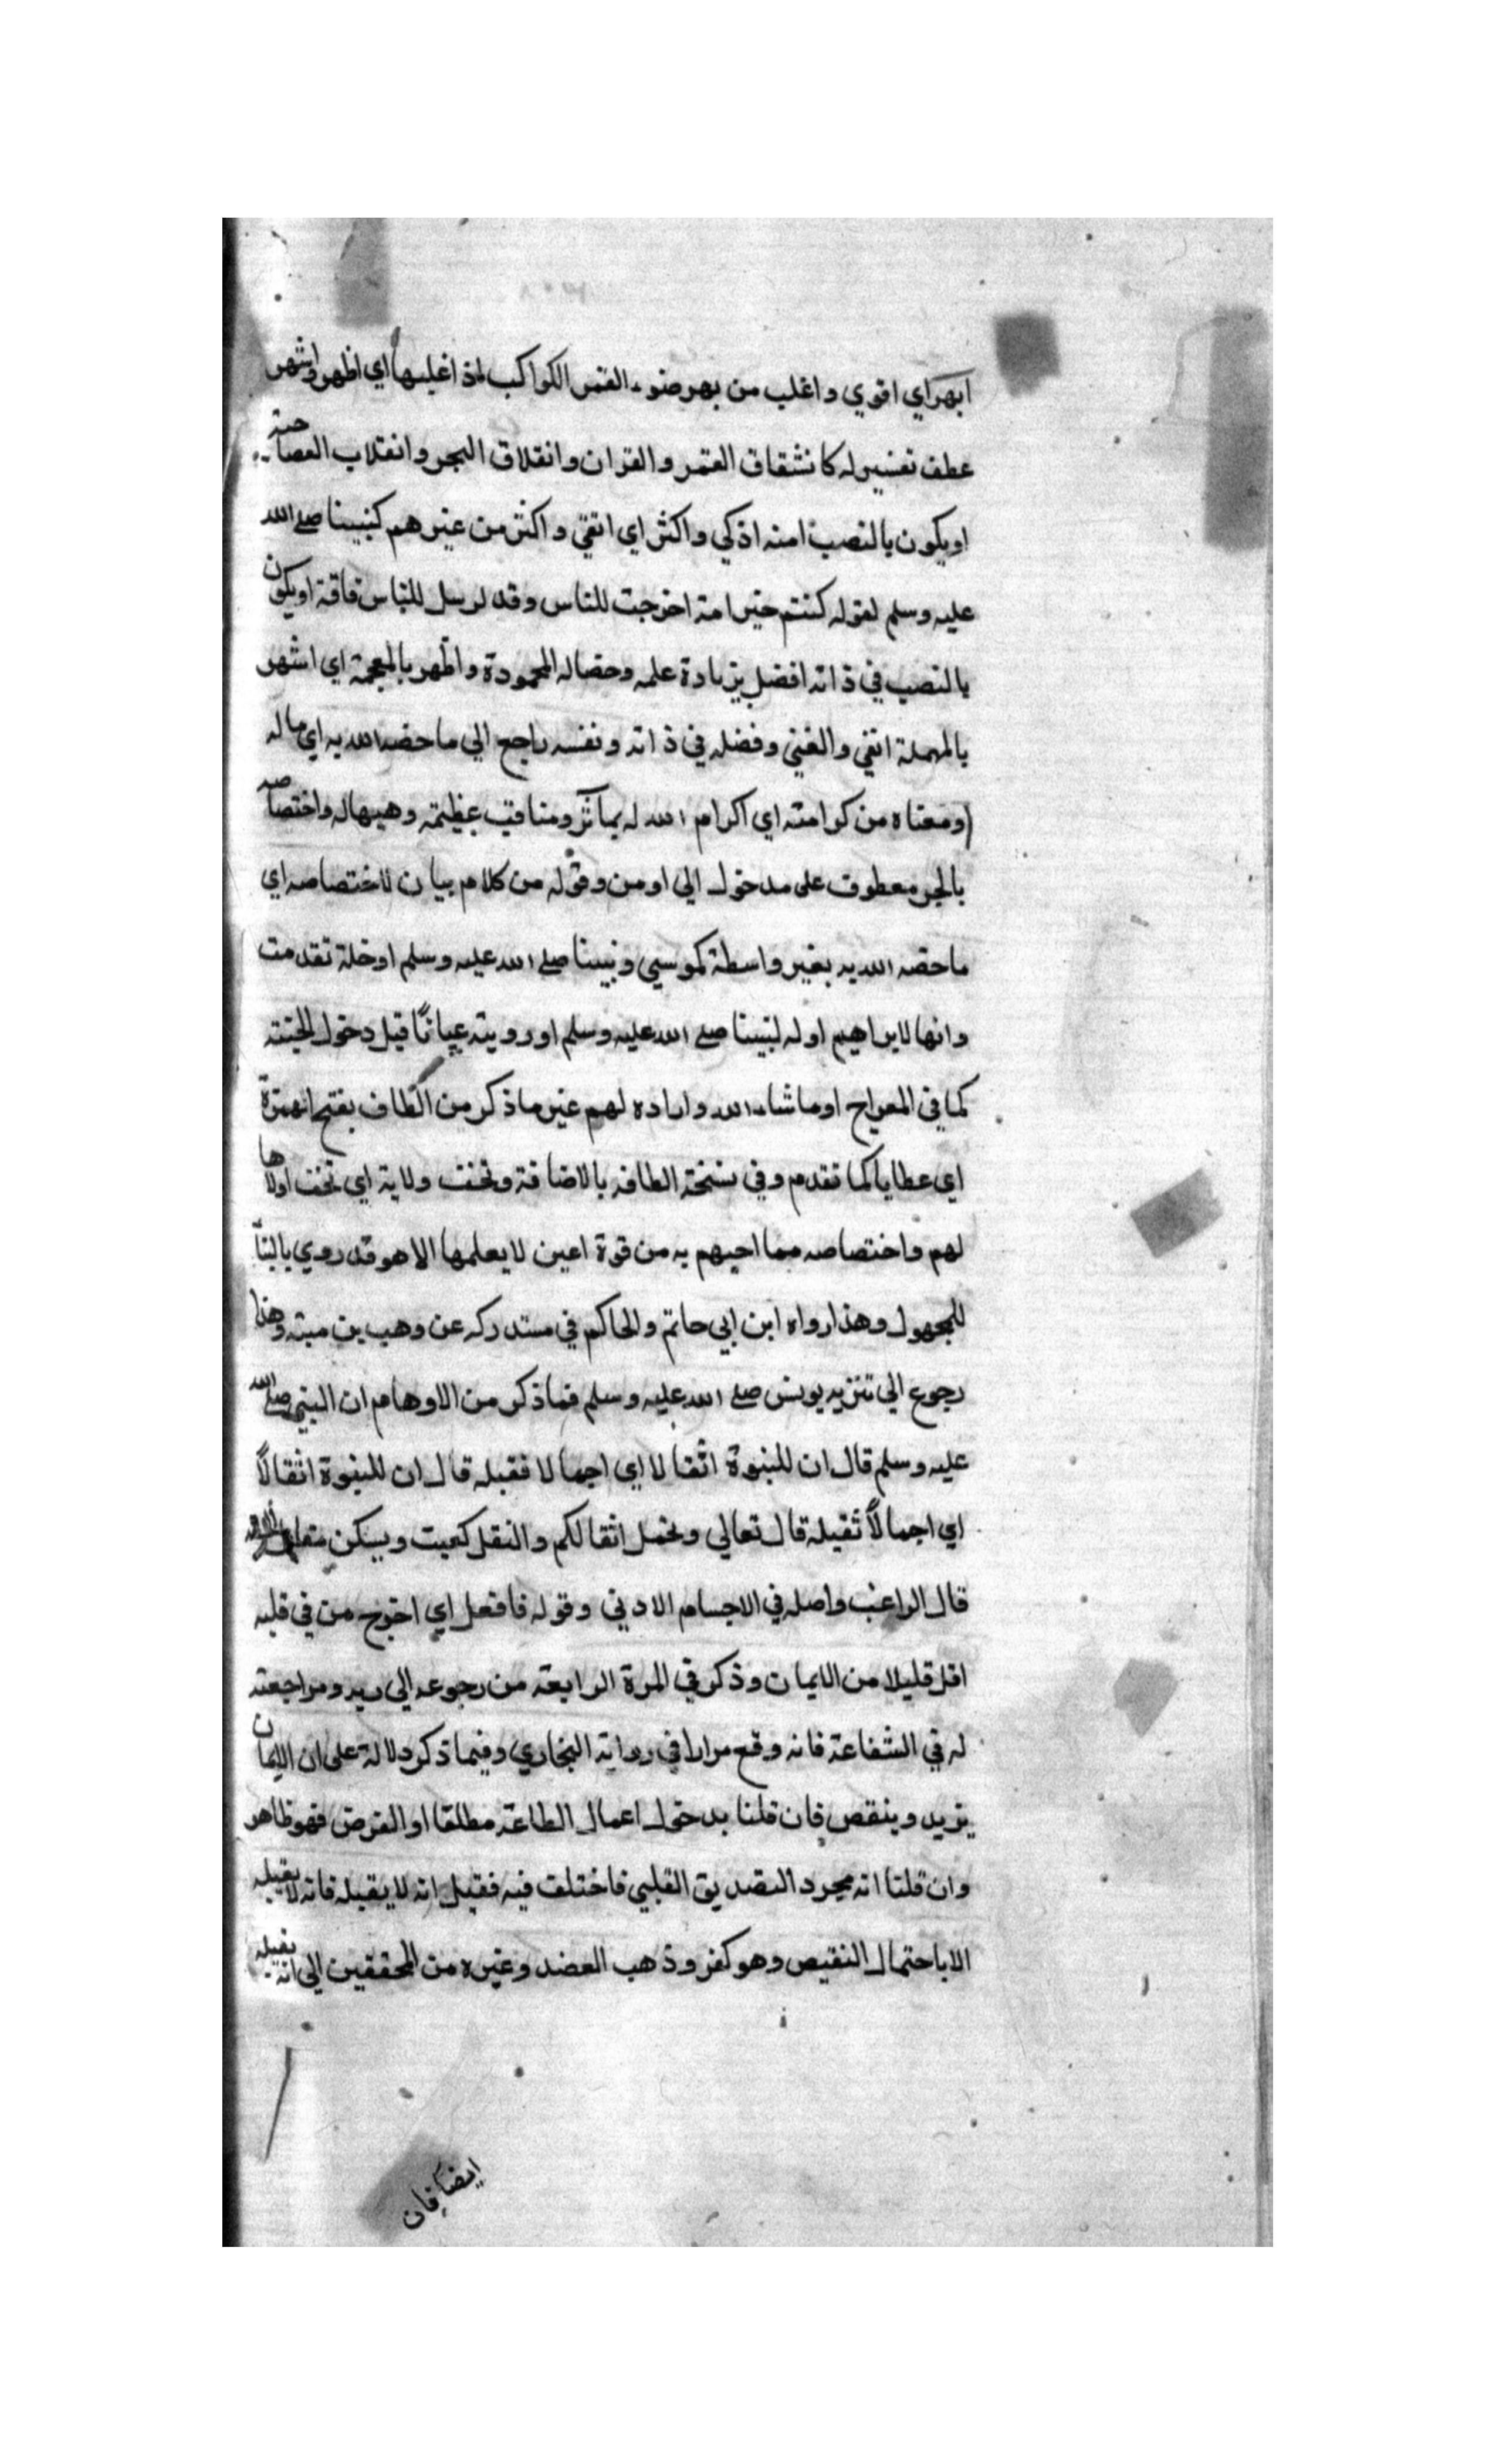 ابهر اي اقوي واغلب من بهر ضوء القمر الكواكب اذ اغلبها اي اظهر واشهر
عطف تفسير له كانشقاق القمر والقران وانقلاق البحر وانقلاب العصا حية
او يكون بالنصب امنه اذكي واكثر اي اتقي واكثر من غيرهم كنبينا صلى الله
عليه وسلم لقوله كنتم خير امة اخرجت للناس وقد ارسل للناس فاقة او يكون
بالنصب في ذاته افضل بزيادة علمه وخصاله المحمودة واظهر بالمعجمة اي اشهر
بالمهملة اتقي والغني وفضله في ذاته ونفسه راجع الي ما خصه الله به اي ما له
ومعناه من كرامته اي اكرام الله له بمآثر ومناقب عظيمة وهبها له واختصاصه
بالجر معطوف على مدخول الي او من وقوله من كلام بيان لاختصاصه اي
ما خصه الله به بغير واسطة كموسي ونبينا صلى الله عليه وسلم او خلة تقدمت
وانها لابراهيم او له لنبينا صلى الله عليه وسلم او رويته عيانًا قبل دخول الجنة
كما في المعراج او ما شاء الله واراده لهم غير ما ذكر من الطاف بفتح الهمزة
اي عطايا كما تقدم وفي نسخة الطافه بالاضافة وتحف ولاية اي تحف اولاها
لهم واختصاصه مما احبهم به من قرة اعين لا يعلمها الا هو قد روي بالبنآ
للمجهول وهذا رواه ابن ابي حاتم والحاكم في مستدركه عن وهب بن منبه وهذا
رجوع الي تنزيه يونس صلى الله عليه وسلم فما ذكر من الاوهام ان النبي صلى الله
عليه وسلم قال ان للنبوة اثقالا اي اجمالا فقبله قال ان للنبوة اثقالاً
اي اجمالاً ثقيلة قال تعالي وتحمل اثقالكم والثقل كعيت ويسكن
قال الراغب واصله في الاجسام الادني وقوله فافعل اي اخرج من في قلبه
اقل قليلا من الايمان وذكر في المرة الرابعة من رجوعه الى ربه ومراجعته
له في الشفاعة فانه وقع مرارا في رواية البخاري وفيما ذكر دلالة على ان الايمان
يزيد وينقص فان قلنا بدخول اعمال الطاعة مطلقا او الفرض فهو ظاهر
وان قلنا انه مجرد التصديق القلبي فاختلف فيه فقيل انه لا يقبله فانه لا يقبله
الا باحتمال النقيص وهو كفر وذهب العضد وغيره من المحققين الي انه يقبله
ايضا فان